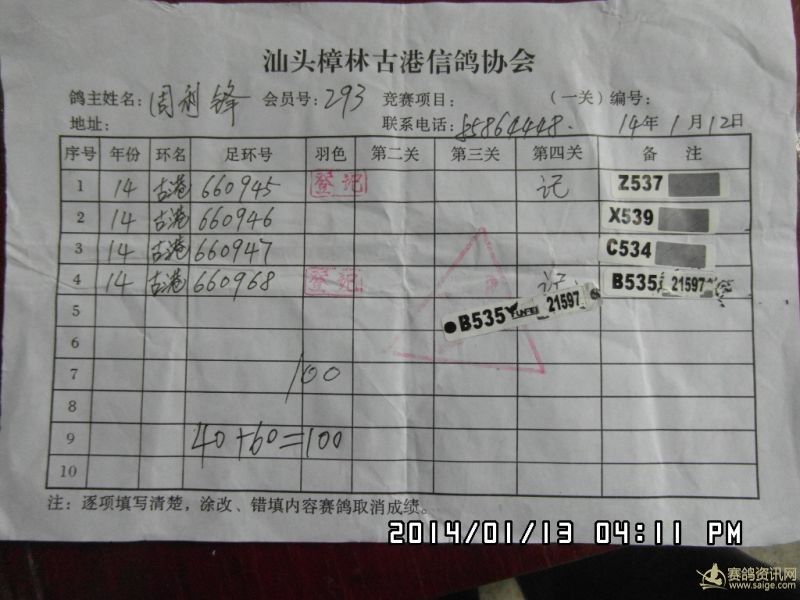 汕头樟林古港信鸽协会
鸽主姓名：周利锋 会员号：293 竞赛项目： （一关）编号：
地址： 联系电话：85864448. 14年1月12日
序号 年份 环名 足环号 羽色 第二关 第三关 第四关 备 注
1 14 古港 660945 登记 记 Z537
2 14 古港 660946 X539
3 14 古港 660947 C534
4 14 古港 660968 登记 记 B535 21597
B535 21597
5
6
7 100
8
9 40+60=100
10
注：逐项填写清楚，涂改、错填内容赛鸽取消成绩。
2014/01/13 04:11 PM
赛鸽资讯网
www.saige.com